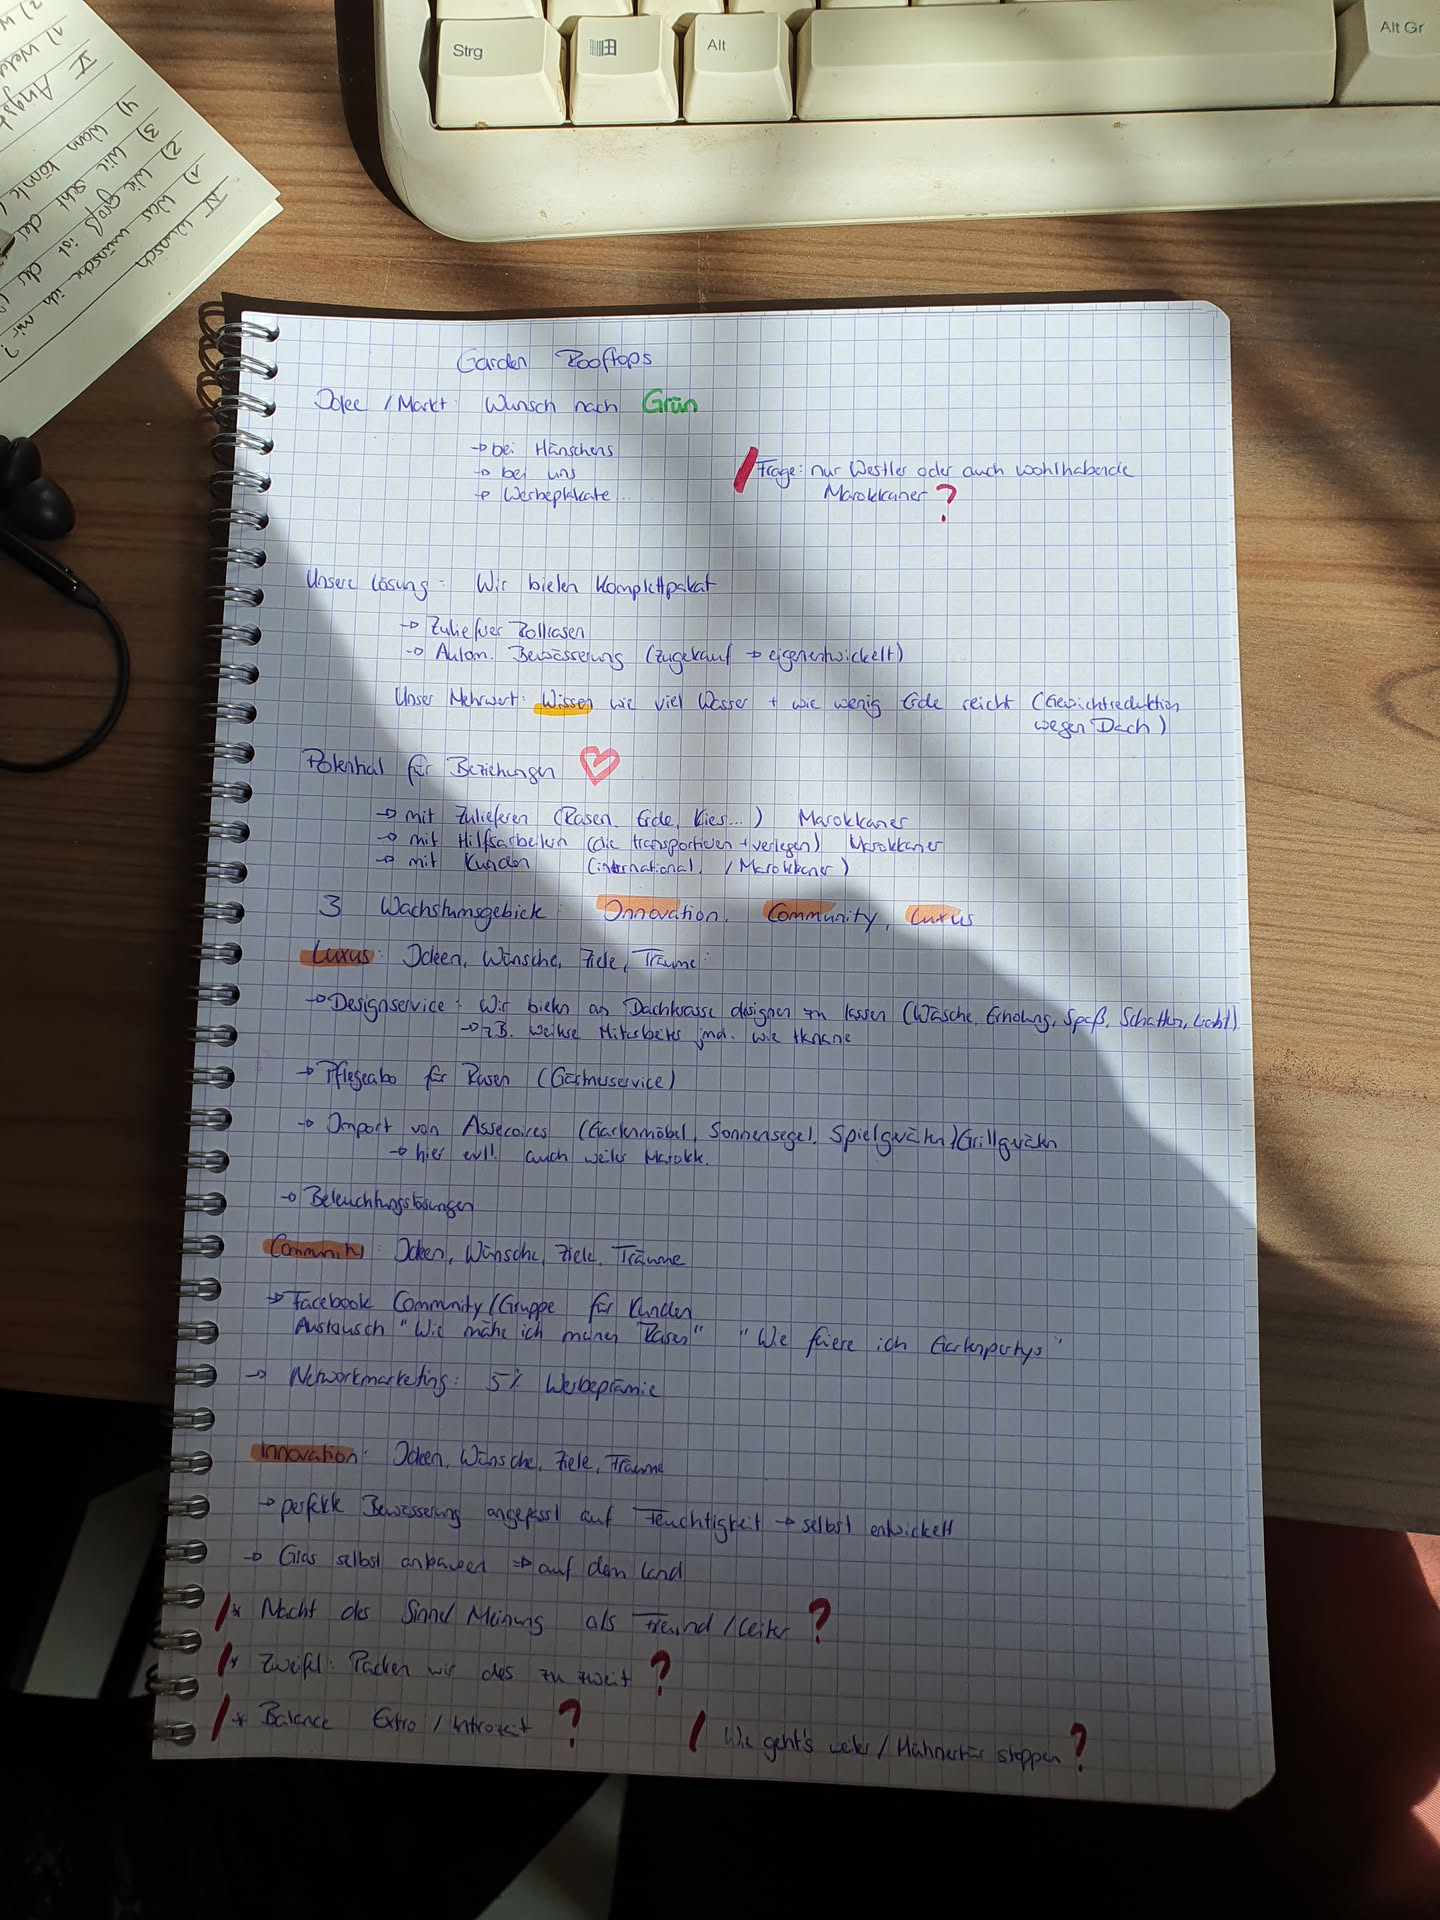 Strg
Alt
Alt Gr
IV Wunsch
1) Was wünsche ich mir?
2) Wie groß ist der
3) Wie seht der
4) Wann könnte
V Angst
1) Welc
2) W
Garden Rooftops
Idee / Markt: Wunsch nach Grün
→ bei Hänschens
→ bei uns
→ Werbeplakate...
Frage: nur Westler oder auch wohlhabende
Marokkaner?
Unsere Lösung: Wir bieten Komplettpaket
→ Zuliefrer Rollrasen
→ Autom. Bewässerung (zugekauf → eigenentwickelt)
Unser Mehrwert: Wissen wie viel Wasser + wie wenig Erde reicht (Gewichtreduktion
wegen Dach)
Potential für Beziehungen
→ mit Zulieferen (Rasen, Erde, Kies...) Marokkaner
→ mit Hilfsarbeitern (die transportieren + verlegen) Marokkaner
→ mit Kunden (international / Marokkaner)
3 Wachstumsgebiete: Innovation, Community, Luxus
Luxus: Ideen, Wünsche, Ziele, Träume:
→ Designservice: Wir bieten an Dachterrasse designen zu lassen (Wäsche, Erholung, Spaß, Schatten, Licht)
→ z.B. weitere Mitarbeiter jmd. wie
→ Pflegeabo für Rasen (Gärtnerservice)
→ Import von Assecoires (Gartenmöbel, Sonnensegel, Spielgeräten) Grillgeräten
→ hier evtl. auch weiter Marokk.
→ Beleuchtungslösungen
Community: Ideen, Wünsche, Ziele, Träume
→ Facebook Community/Gruppe für Kunden
Austausch "Wie mähe ich meinen Rasen" "Wie feiere ich Gartenpartys"
→ Networkmarketing: 5% Werbeprämie
Innovation: Ideen, Wünsche, Ziele, Träume
→ perfekte Bewässerung angepasst auf Feuchtigkeit → selbst entwickelt
→ Gras selbst anbauen → auf dem Land
* Macht das Sinn/Meinung als Freund/Leiter?
* Zweifel: Packen wir das zu zweit?
* Balance Extro / Introzeit?
Wie geht's weiter / Hühnertür stoppen?